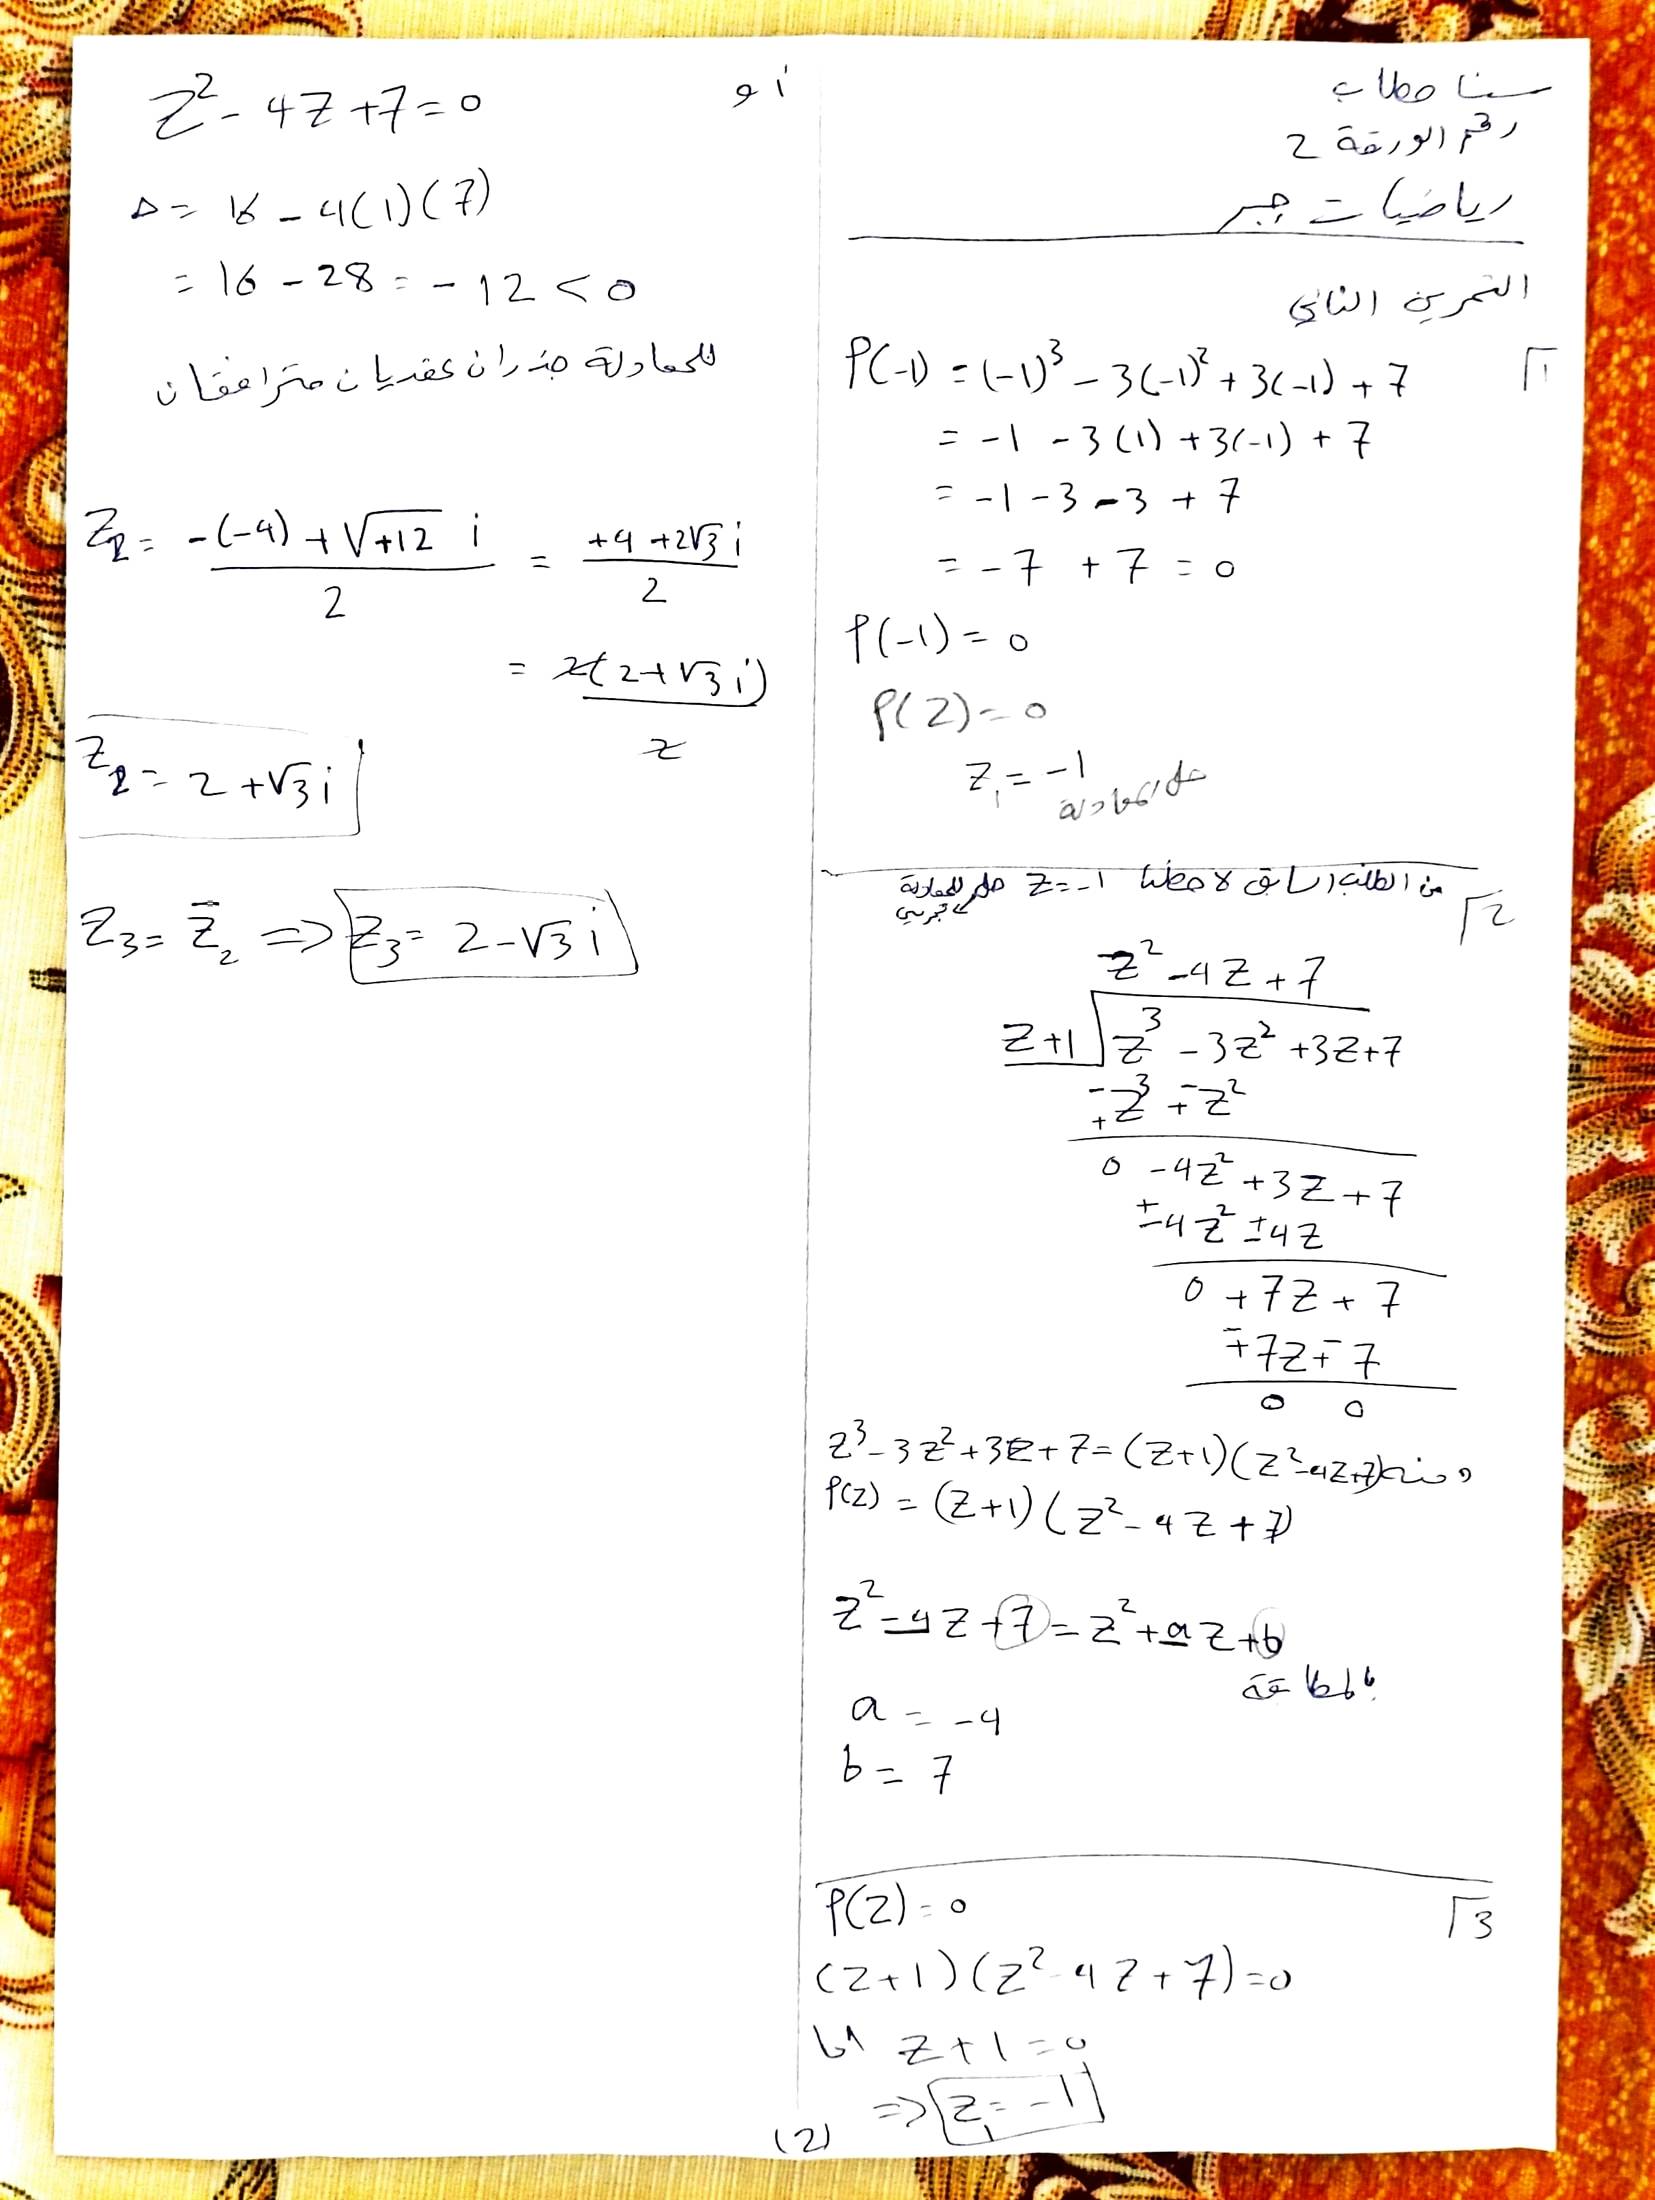 سنا حطاب
رقم الورقة 2
رياضيات جبر
التمرين الثاني
1
P(-1) = (-1)³ - 3(-1)² + 3(-1) + 7
= -1 - 3(1) + 3(-1) + 7
= -1 - 3 - 3 + 7
= -7 + 7 = 0
P(-1) = 0
P(Z) = 0
Z₁ = -1
حل للمعادلة
2
من الطلب السابق لاحظنا Z = -1 حل للمعادلة
Z² - 4Z + 7
Z+1 Z³ - 3Z² + 3Z + 7
∓Z³ ∓ Z²
0 - 4Z² + 3Z + 7
±4Z² ± 4Z
0 + 7Z + 7
∓7Z ∓ 7
0 0
ومنه Z³ - 3Z² + 3Z + 7 = (Z+1)(Z² - 4Z + 7)
P(Z) = (Z+1)(Z² - 4Z + 7)
Z² - 4Z + 7 = Z² + aZ + b
بالمطابقة
a = -4
b = 7
3
P(Z) = 0
(Z+1)(Z² - 4Z + 7) = 0
اما Z + 1 = 0
=> Z₁ = -1
(2)
او Z² - 4Z + 7 = 0
Δ = 16 - 4(1)(7)
= 16 - 28 = -12 < 0
للمعادلة جذران عقديان مترافقان
Z₂ = -(-4) + √+12 i / 2 = +4 + 2√3 i / 2
= 2(2 + √3 i) / 2
Z₂ = 2 + √3 i
Z₃ = Z̄₂ => Z₃ = 2 - √3 i